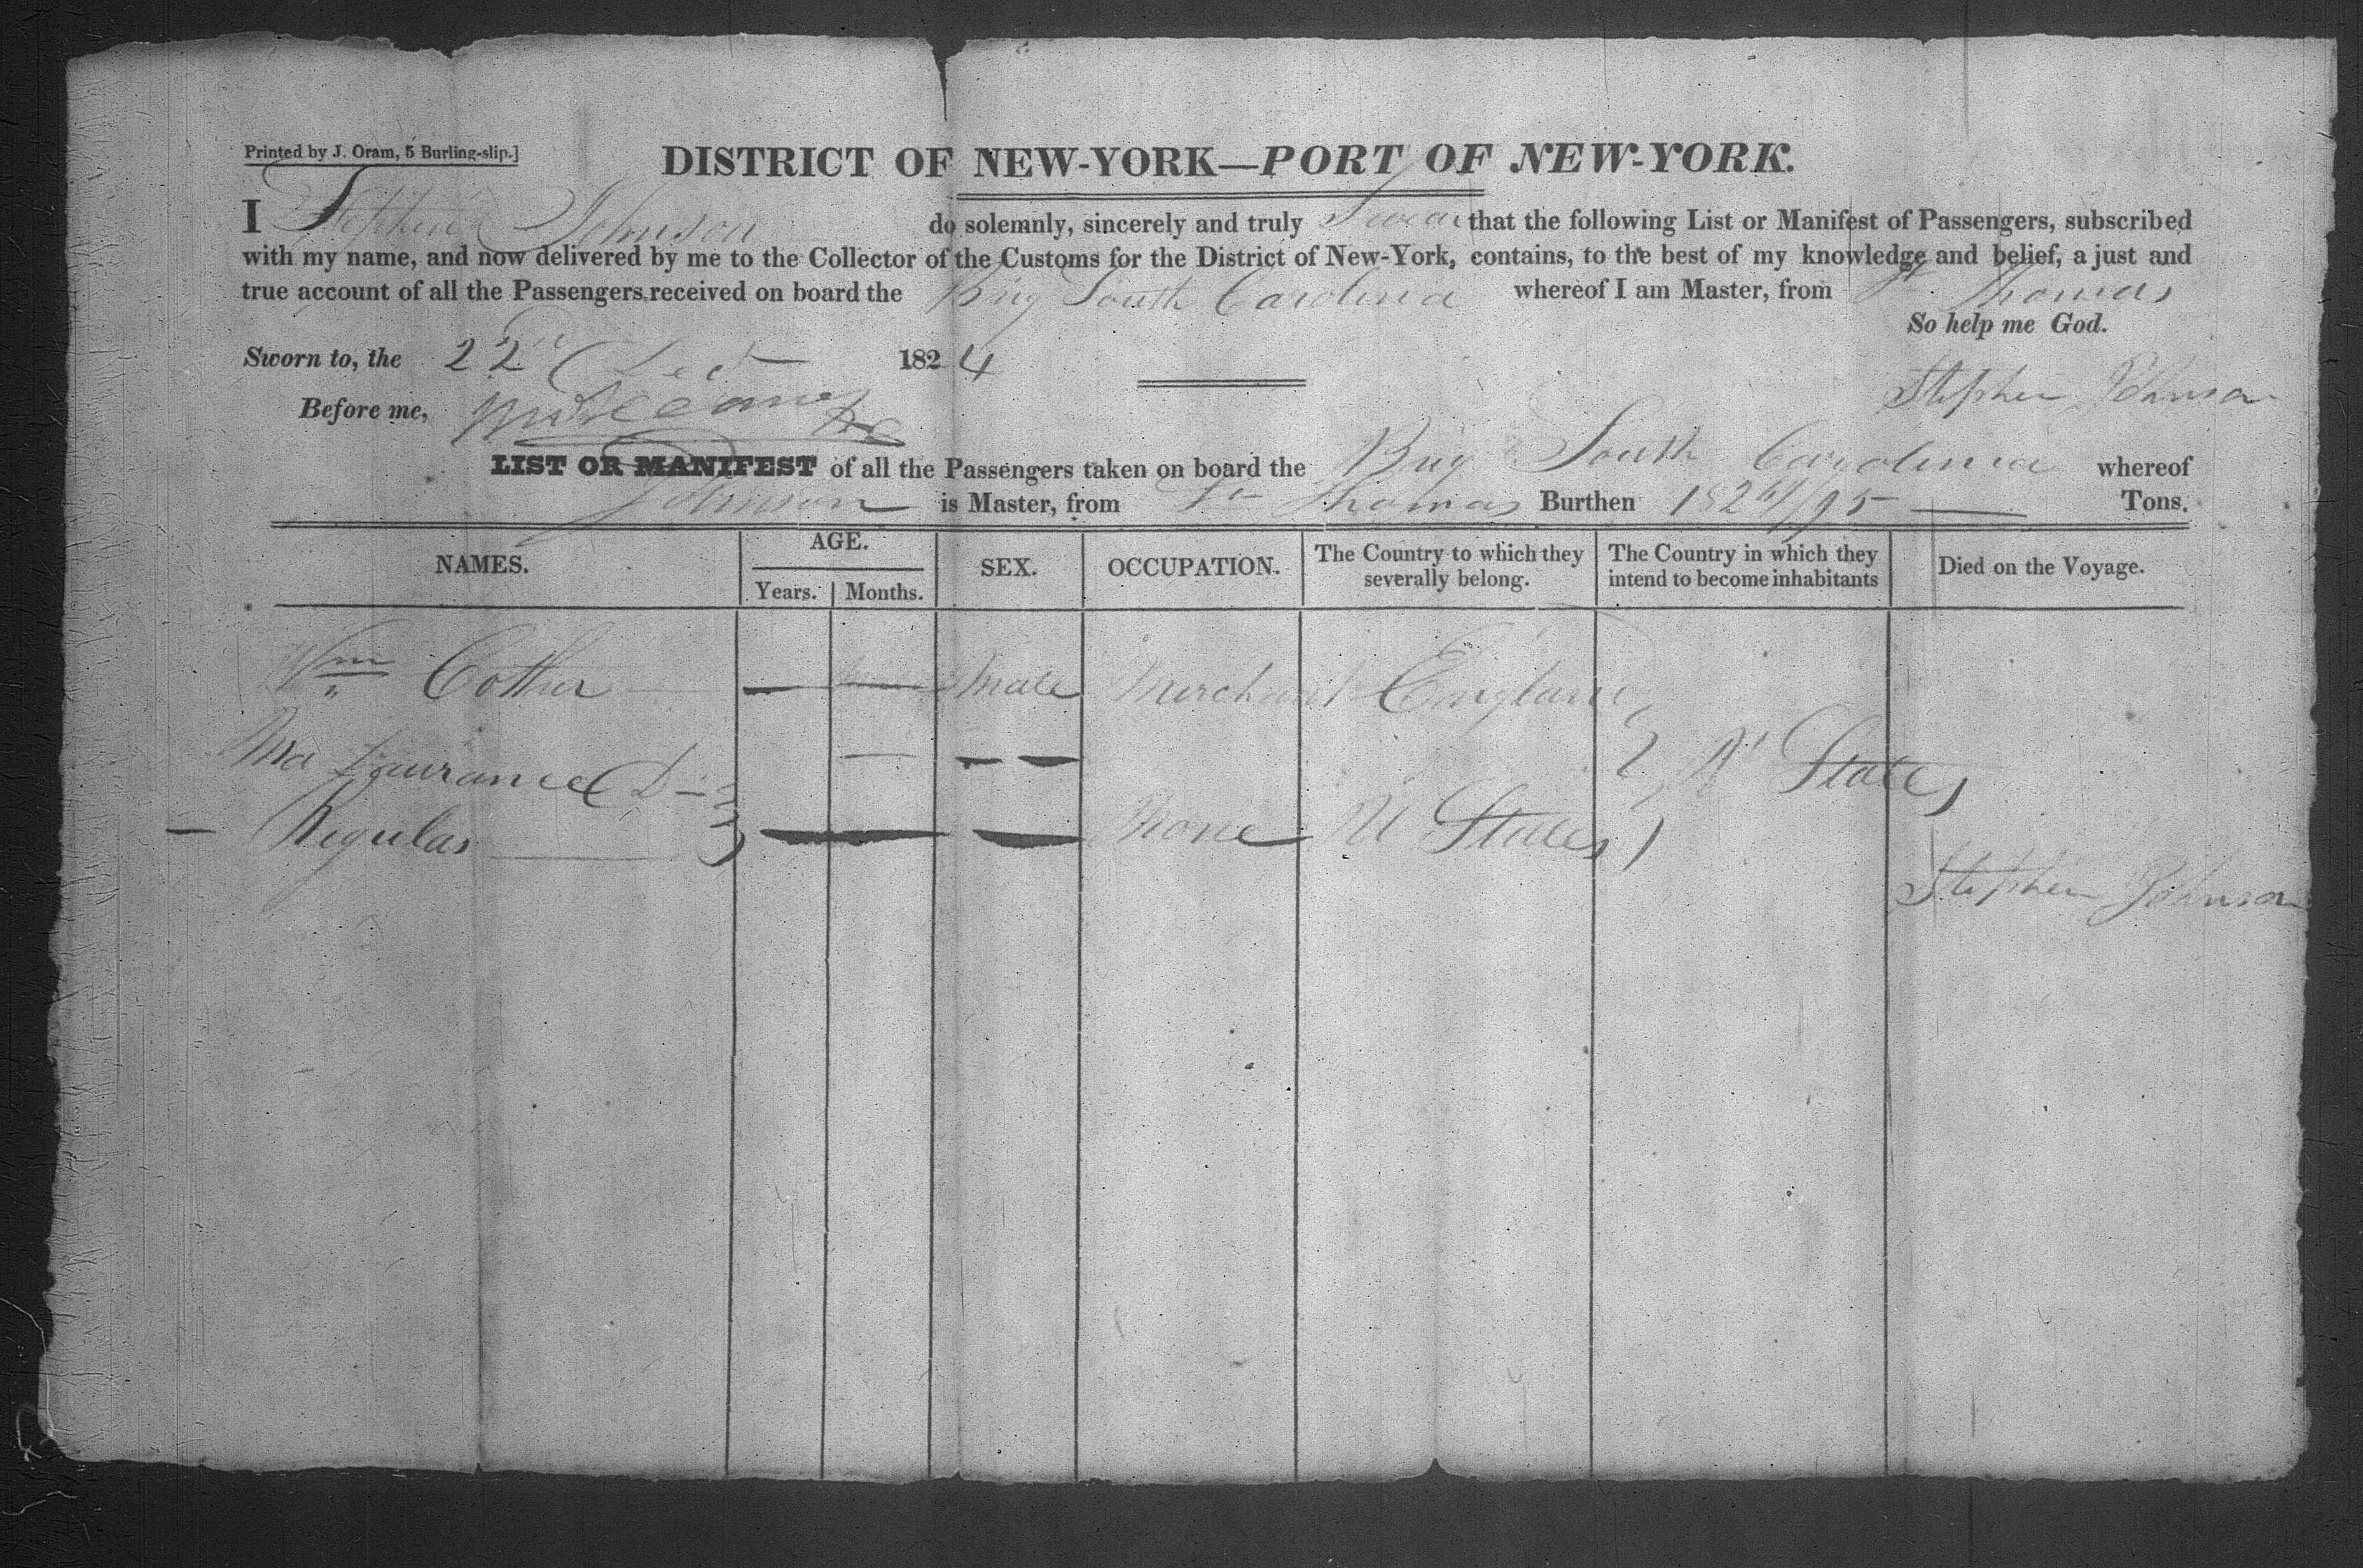 Printed by J. Oram, 5 Burling-slip.]
DISTRICT OF NEW-YORK—PORT OF NEW-YORK.
I Stephen Johnson do solemnly, sincerely and truly Swear that the following List or Manifest of Passengers, subscribed
with my name, and now delivered by me to the Collector of the Customs for the District of New-York, contains, to the best of my knowledge and belief, a just and
true account of all the Passengers received on board the Brig South Carolina whereof I am Master, from St Thomas
So help me God.
Sworn to, the 22d Dec 1824
Stephen Johnson
Before me,
LIST OR MANIFEST of all the Passengers taken on board the Brig South Carolina whereof
Johnson is Master, from St Thomas Burthen 182 64/95 Tons.
NAMES. AGE. SEX. OCCUPATION. The Country to which they severally belong. The Country in which they intend to become inhabitants Died on the Voyage.
Years. Months.
Wm Cother Male Merchant England
U States
Regulas None U States
Stephen Johnson